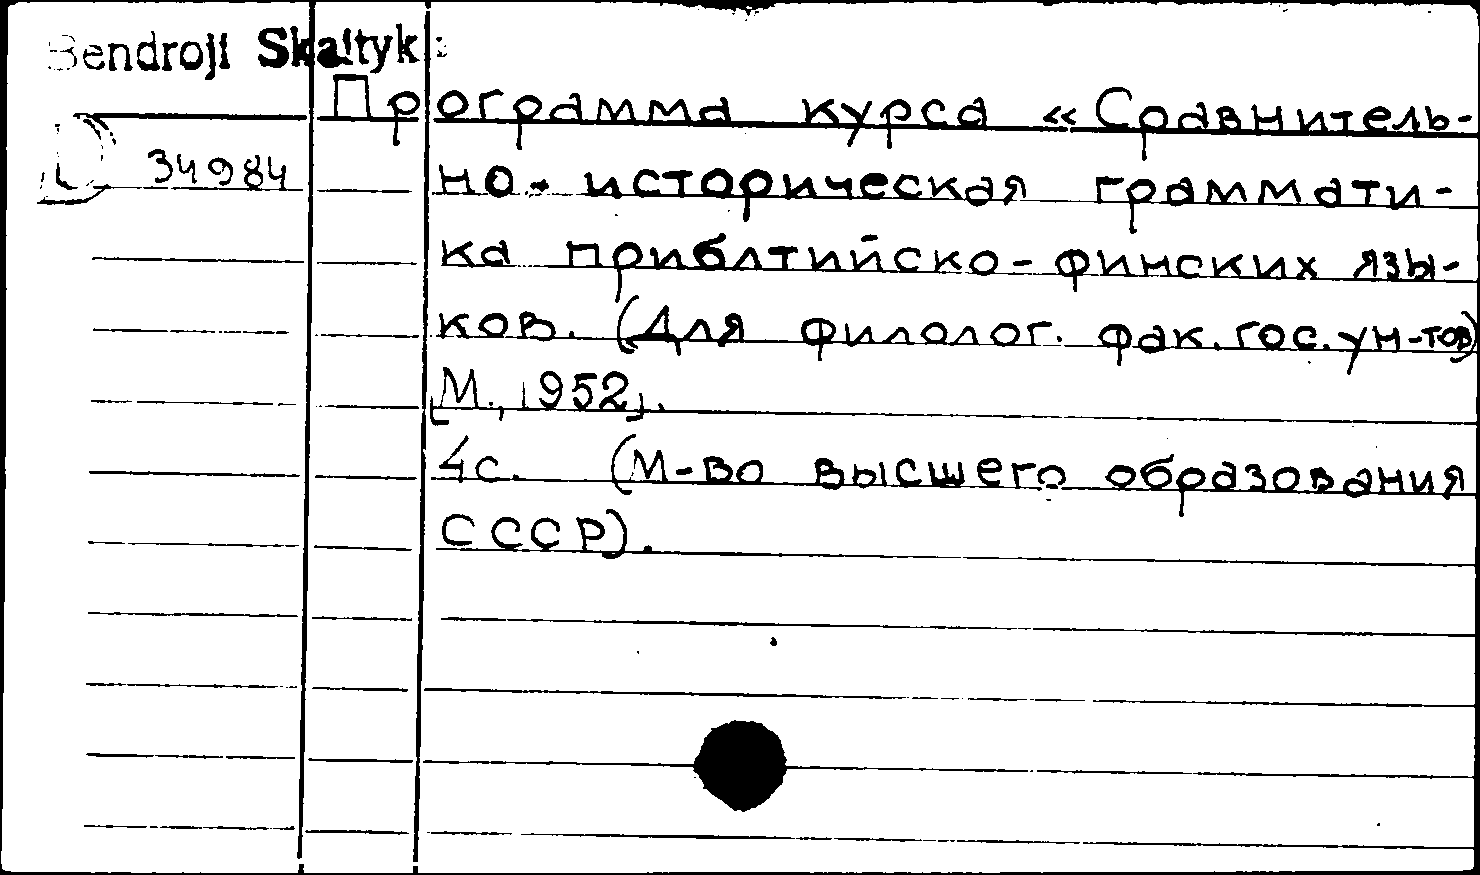 Bendroji Skaityk
Программа курса «Сравнитель-
D 34984
но-историческая граммати-
ка приблтийско-финских язы-
ков. (Для филолог. фак. гос. ун-тов)
[М., 1952].
4с. (М-во высшего образования
СССР).